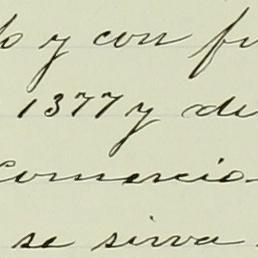 y con
1377 y de
Comercio
se sirva